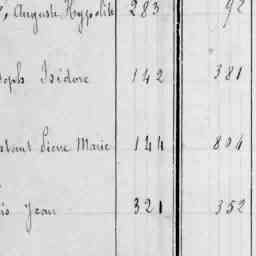 , Auguste, Hypolite 283 92
oseph Isidore 142 381
stant Pierre Marie 144 804
is Jean 321 352